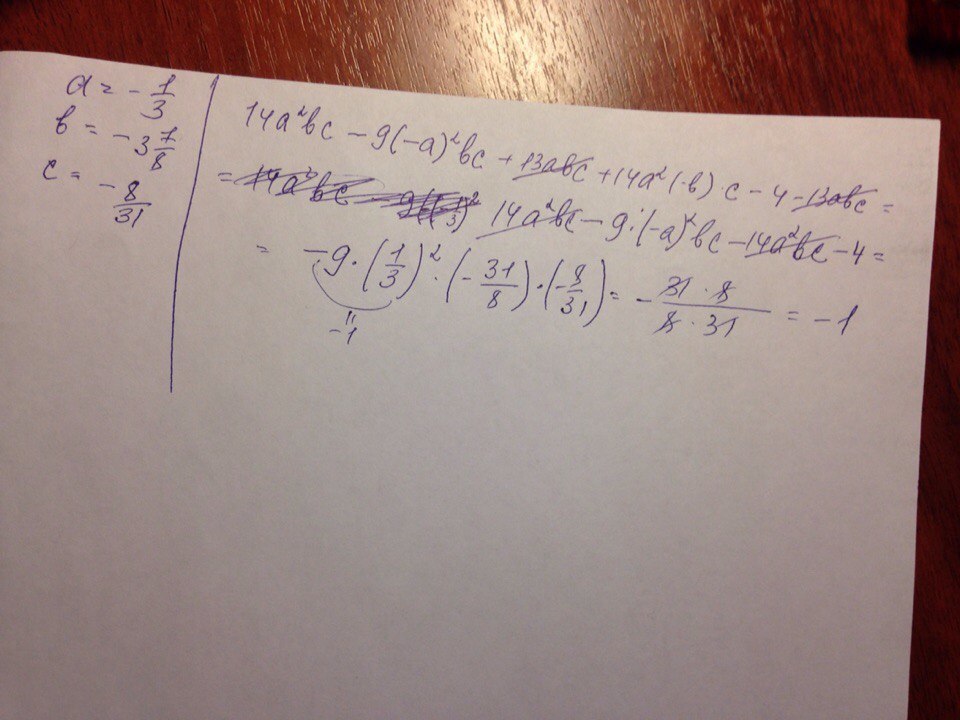 a = - 1/3
b = - 3 7/8
c = - 8/31
14a²bc - 9(-a)²bc + 13abc + 14a²(-b)·c - 4 - 13abc =
= 14a²bc - 14a²bc - 9·(-a)²bc - 14a²bc - 4 =
= -9·(1/3)²·(-31/8)·(-8/31) = - 31·8/8·31 = -1
"
-1